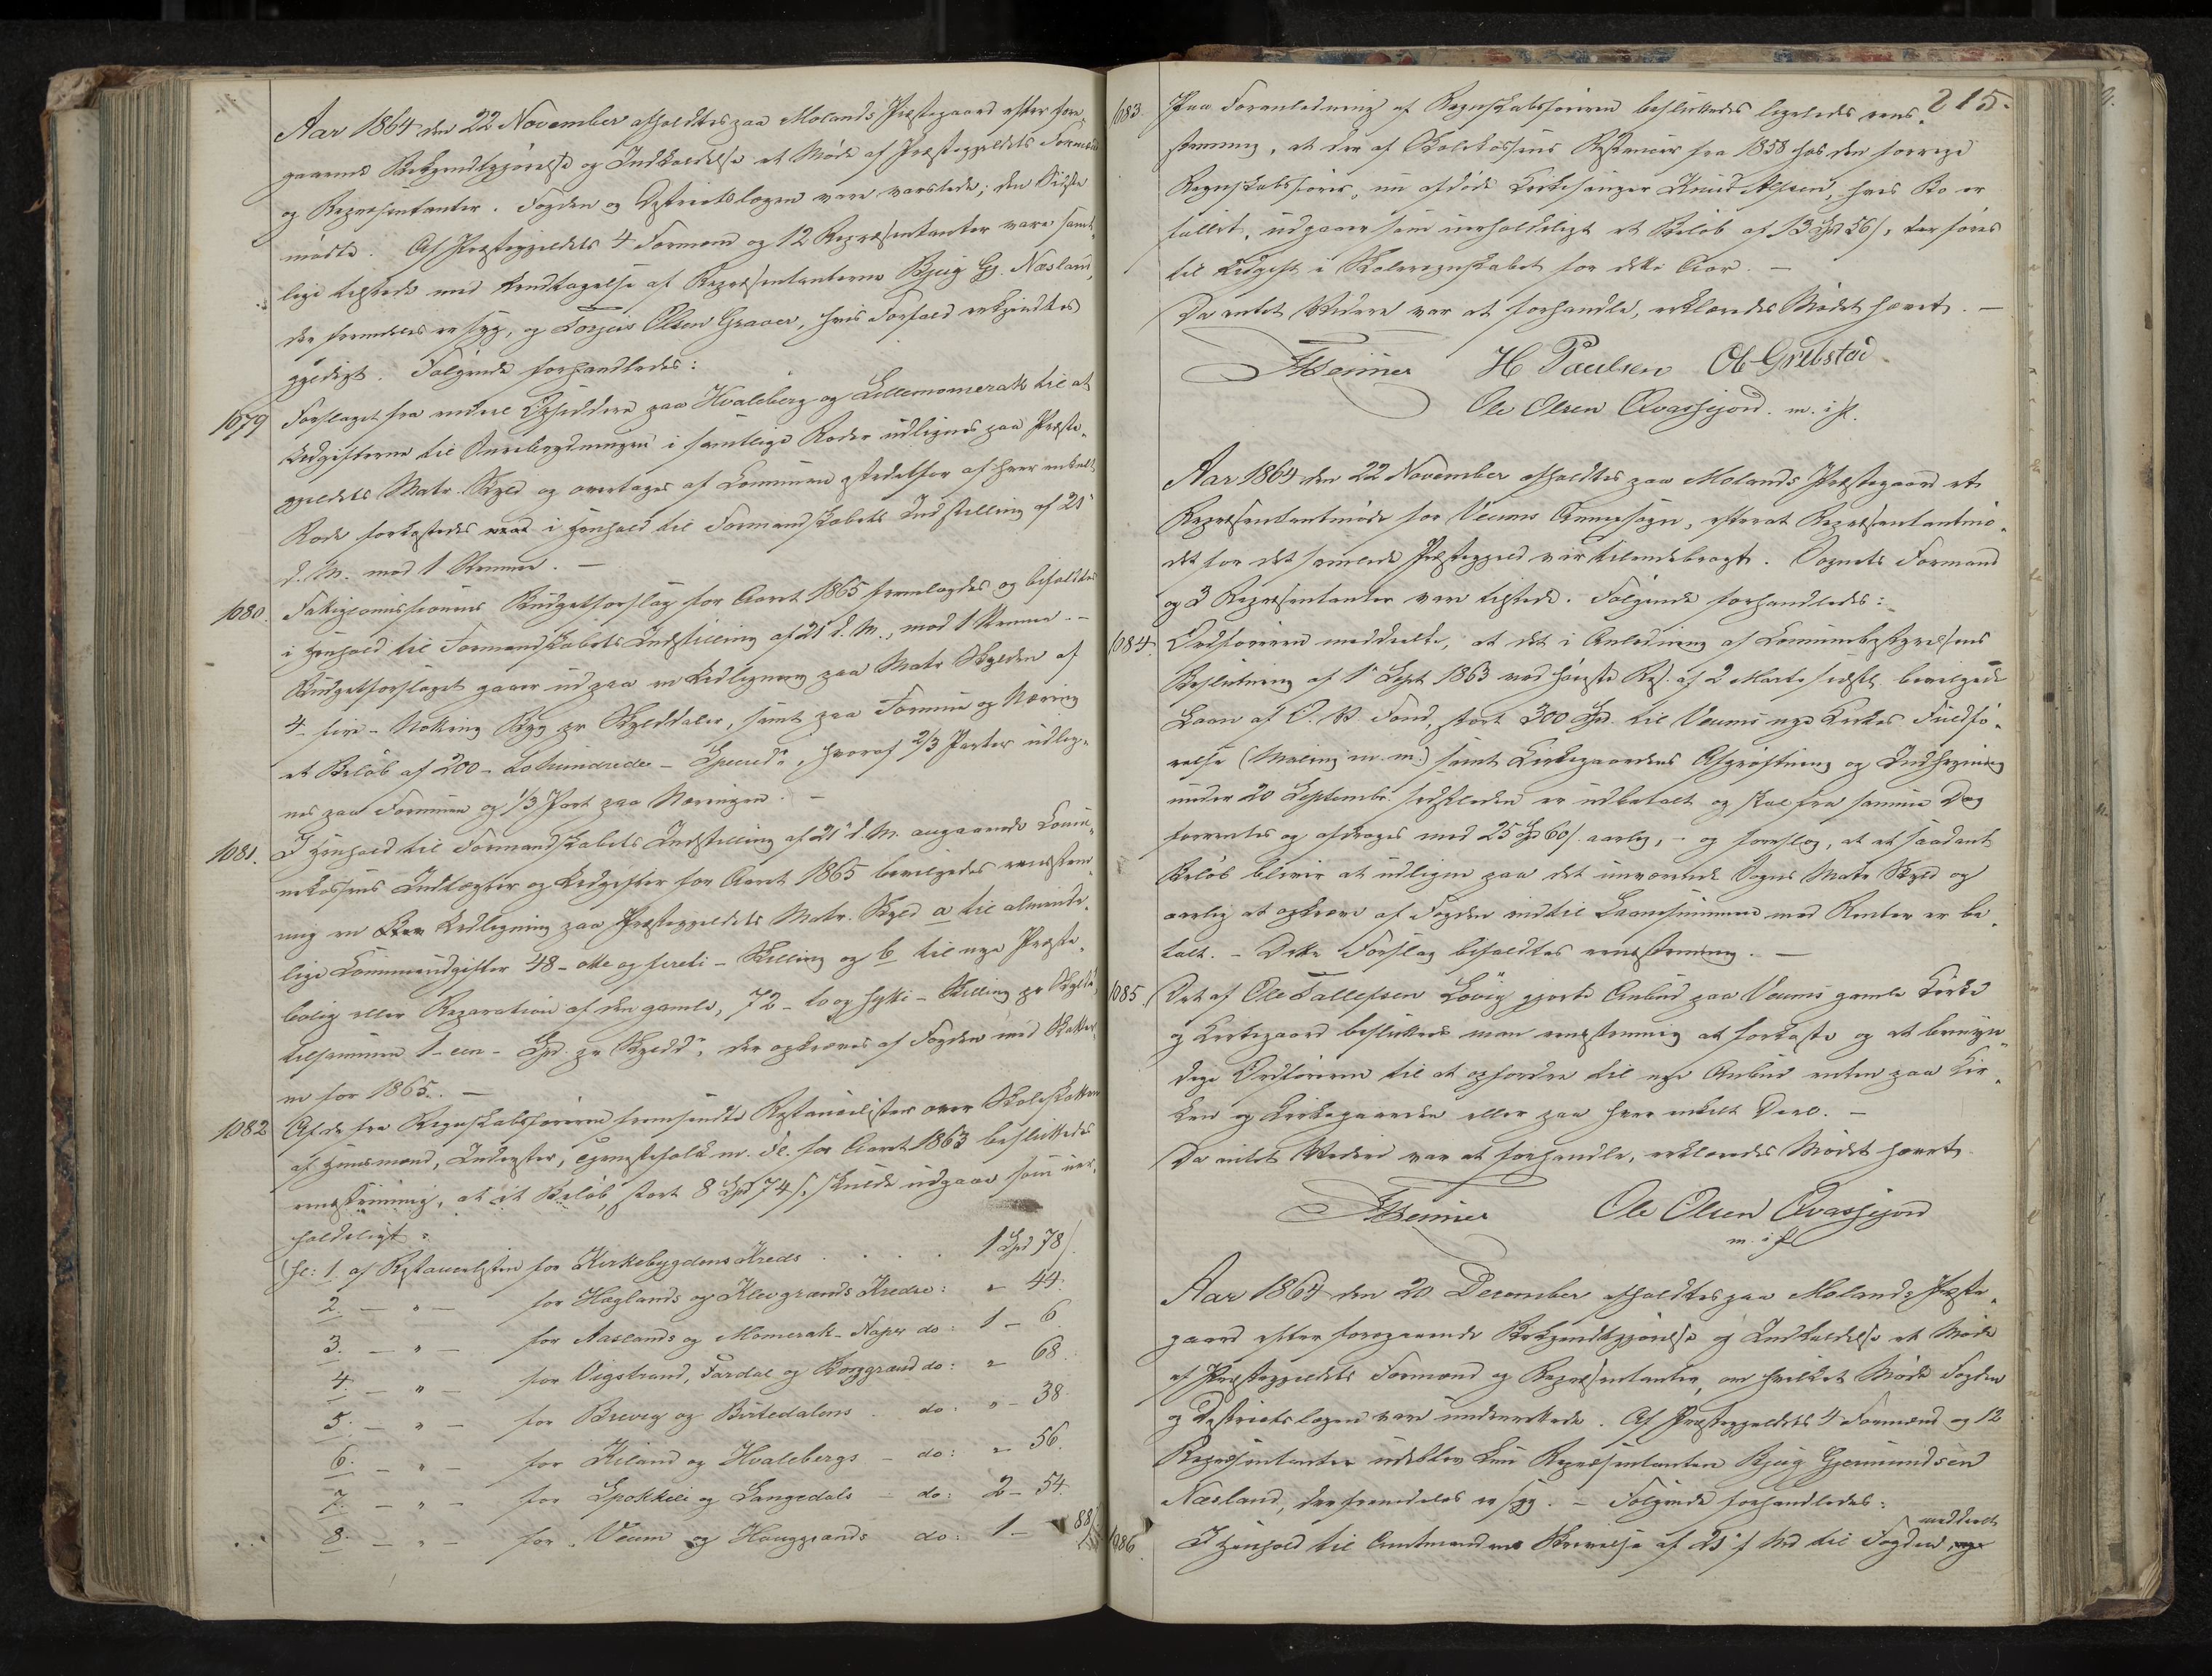 Aar 1864 den 22 November afholdtes paa Molands Præstegaard efter fore-
gaaende Bekjendtgjørelse og Indkaldelse et Møde af Præstegjeldets Formænd
og Repræsentanter. Fogden og Distriktslægen vare varslede; den Sidste
mødte. Af Præstegjeldets 4 Formænd og 12 Repræsentanter vare samt-
lige tilstede med Undtagelse af Repræsentanterne Bjug Gj. Næsland,
der fremdeles er syg, og Torjus Olsen Graver, hvis Forfald erkjendtes
gyldigt. Følgende forhandledes:
1079 Forslaget fra endeel Opsiddere paa Hvaleberg og Lillemomerak til at
Udgifterne til Snebrydningen i samtlige Roder udlignes paa Præste-
gjeldets Matr. Skyld og overtages af Communen istedetfor af hver enkelt
Rode forkastedes i Henhold til Formandskabets Indstilling af 21de
d. M. mod 1 Stemme. —
1080. Fattigcommissionens Budgetforslag for Aaret 1865 fremlagdes og bifaldtes
i Henhold til Formandskabets Indstilling af 21 d. M., mod 1 Stemme. —
Budgetforslaget gaaer ud paa en Udligning paa Matr Skylden af
4 - fire - Notting Byg pr Skylddaler, samt paa Formue og Næring
et Beløb af 200 - tohundrede - Specd., hvoraf 2/3 Parter udlig-
nes paa Formuen og 1/3 Part paa Næringen. —
1081. I Henhold til Formandskabets Indstilling af 21 d. M. angaaende Commu-
nekassens Indtægter og Udgifter for Aaret 1865 bevilgedes eenstem-
mig en Udligning paa Præstegjeldets Matr. Skyld a til alminde-
lige Communeudgifter 48 - otte og fireti - Skilling og b til nye Præste-
bolig eller Reparation af den gamle, 72 - to og sytti - Skilling pr Skyldd,
tilsammen 1 - een - Spd. pr Skyldd, der opkræves af Fogden med Skatter-
ne for 1865. —
1082 Af de fra Regnskabsføreren fremsendte Restancelister over Skoleskatten
af Huusmænd, Inderster, Tjenestefolk m. Fl. for Aaret 1863 besluttedes
eenstemmig, at et Beløb, stort 8 Spd 74 s, skulde udgaae som uer-
holdeligt:
fl: 1 af Restancelisten for Kirkebygdens Kreds . . . . 1 Spd 78 s.
2. — " — for Haglands og Klevgrænds Kredse: " 44.
3. — " — for Aaslands og Momerak-Naper do: 1 — 6.
4. — " — for Vigstrand, Fardal og Borggrænd do: " 68.
5. — " — for Brevig og Birtedalens do: " — 38.
6. — " — for Kiland og Hvalebergs — do: " 56.
7. — " — for Spokkeli og Langedals — do: 2 — 54.
8. — " — for Veum og Hauggrænds do: 1 — 88.
215.
1083. Paa Foranledning af Regnskabsføreren besluttedes ligeledes eens-
stemmig, at der af Skolekassens Restancer fra 1858 hos den forrige
Regnskabsfører, nu afdøde Kirkesanger Knud Alfsen, hvis Bo er
fallit, udgaaer som uerholdeligt et Beløb af 13 Spd 56 s, der føres
til Udgift i Skoleregnskabet for dette Aar. —
Da intet Videre var at forhandle, erklæredes Mødet hævet. —
H Paulsen Ol Grelstad
Ole Olsen Qvassjord. m. i p.
Aar 1864 den 22 November afholdtes paa Molands Præstegaard et
Repræsentantmøde for Veums Annexsogn, efterat Repræsentantmø-
det for det samlede Præstegjeld var tilendebragt. Sognets Formand
og 3 Repræsentanter vare tilstede. Følgende forhandledes:
1084. Ordføreren meddeelte, at det i Anledning af Communebestyrelsens
Beslutning af 1 Sept 1863 ved høieste Res. af 2 Marts sidstl. bevilgede
Laan af O. V. Fond, stort 300 Spd. til Veums nye Kirkes Fuldfø-
relse (Maling m. m.) samt Kirkegaardens Afgrøftning og Indhegning
under 20 Septembr. sidstleden er udbetalt og skal fra samme Dag
forrentes og afdrages med 25 Spd 60 s. aarlig, - og foreslog, at et saadant
Beløb bliver at udligne paa det nuværende Sogns Matr Skyld og
aarlig at opkræve af Fogden indtil Laanesummen med Renter er be-
talt. - Dette Forslag bifaldtes eenstemmig. —
1085. Det af Ole Tallefsen Løvig gjorte Anbud paa Veums gamle Kirke
og Kirkegaard besluttede man eenstemmig at forkaste og at bemyn-
dige Ordføreren til at opfordre til nye Anbud enten paa Kir-
ken og Kirkegaarden eller paa hver enkelt Deel. —
Da intet Videre var at forhandle, erklæredes Mødet hævet.
Ole Olsen Qvassjord
m. i p
Aar 1864 den 20 December afholdtes paa Molands Præste-
gaard efter foregaaende Bekjendtgjørelse og Indkaldelse et Møde
af Præstegjeldets Formænd og Repræsentanter, om hvilket Møde Fogden
og Distriktslægen vare underrettede. Af Præstegjeldets 4 Formænd og 12
Repræsentanter udeblev kun Repræsentanten Bjug Gjermundsen
Næsland, der fremdeles er syg. - Følgende forhandledes:
1086. I Henhold til Amtmandens Skrivelse af 25 f. Md til Fogden, meddeelt